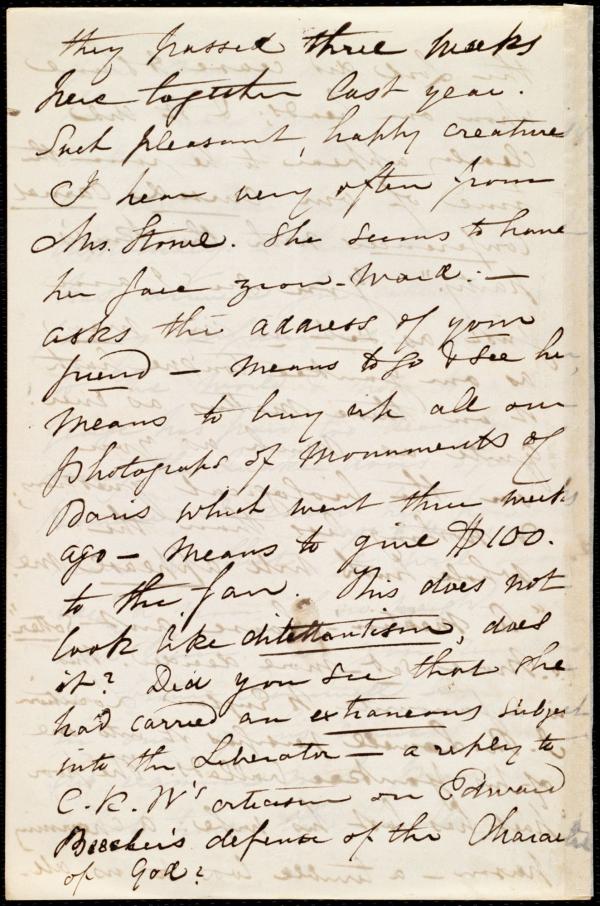 they passed three weeks
here together last year.
Such pleasant, happy creature
I hear very often from
Mrs. Stowe. She seems to have
her face zion-ward: —
asks the address of your
friend — means to go & see he
means to buy up all our
photographs of Monuments of
Paris which went three weeks
ago — means to give $100.
to the fair. This does not
look like dilettantism, does
it? Did you see that she
had carried an extraneous subject
into the Liberator — a reply to
C. K. W's criticism on Edward
Beecher's defense of the Charac
of God?